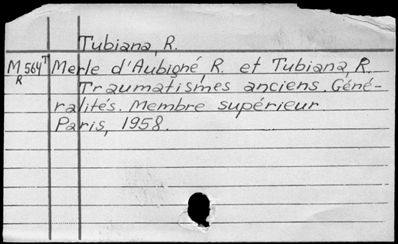 Tubiana, R.
M 564 T Merle d'Aubigné, R. et Tubiana, R.
R Traumatismes anciens. Géné-
ralités. Membre supérieur.
Paris, 1958.